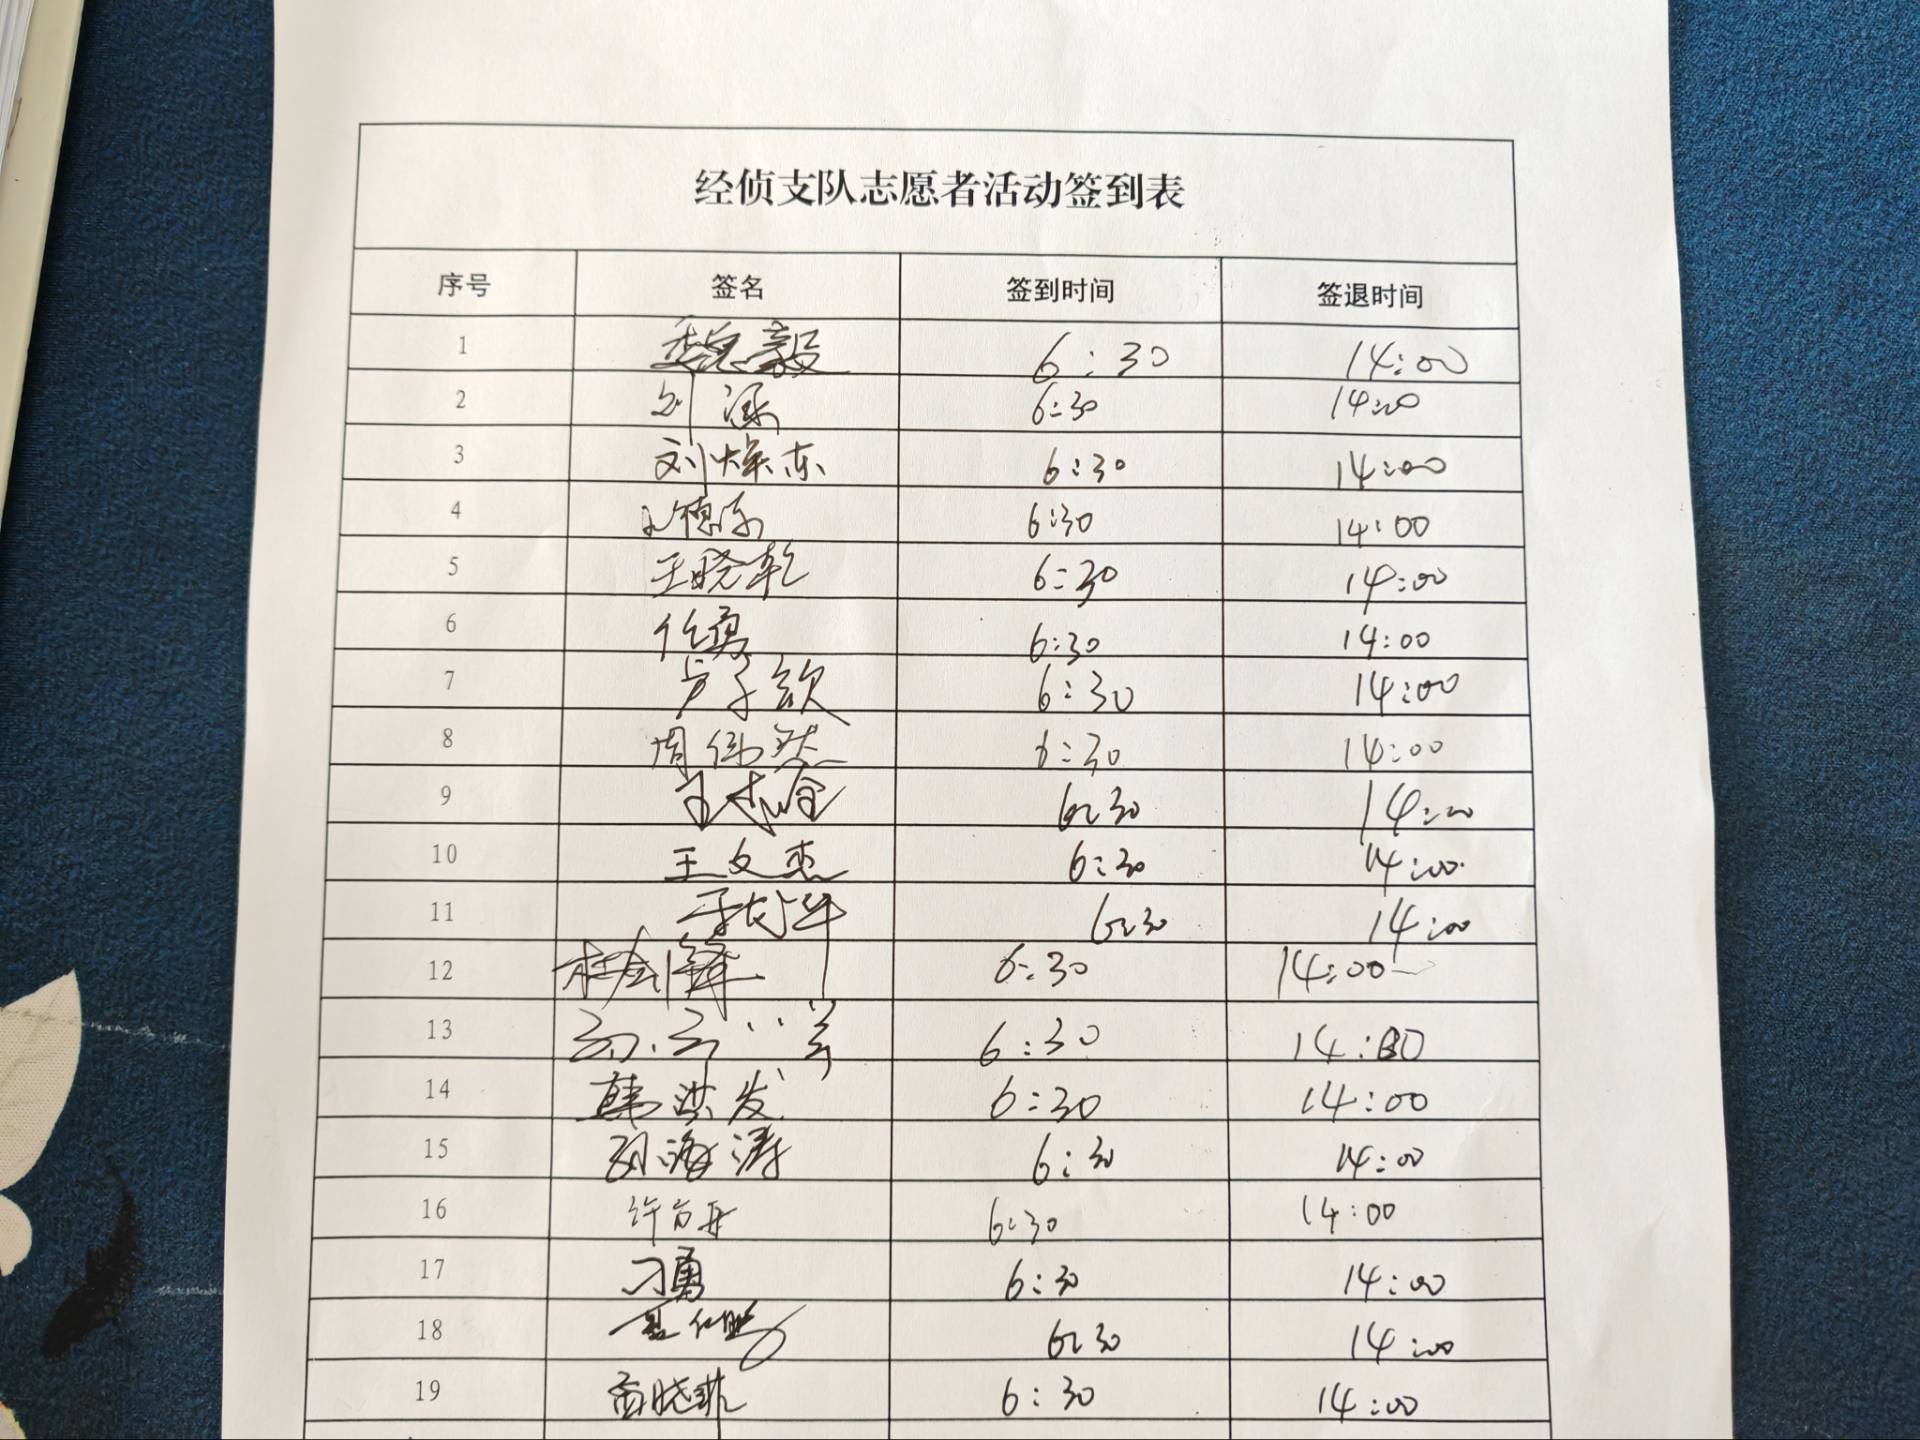 经侦支队志愿者活动签到表
序号 签名 签到时间 签退时间
1 魏毅 6:30 14:00
2 刘 6:30 14:00
3 刘焕东 6:30 14:00
4 6:30 14:00
5 王晓乾 6:30 14:00
6 任勇 6:30 14:00
7 卢子钦 6:30 14:00
8 周伟然 6:30 14:00
9 6:30 14:00
10 王文杰 6:30 14:00
11 6:30 14:00
12 6:30 14:00
13 6:30 14:00
14 韩洪发 6:30 14:00
15 胡海涛 6:30 14:00
16 许方舟 6:30 14:00
17 刁勇 6:30 14:00
18 6:30 14:00
19 晓菲 6:30 14:00